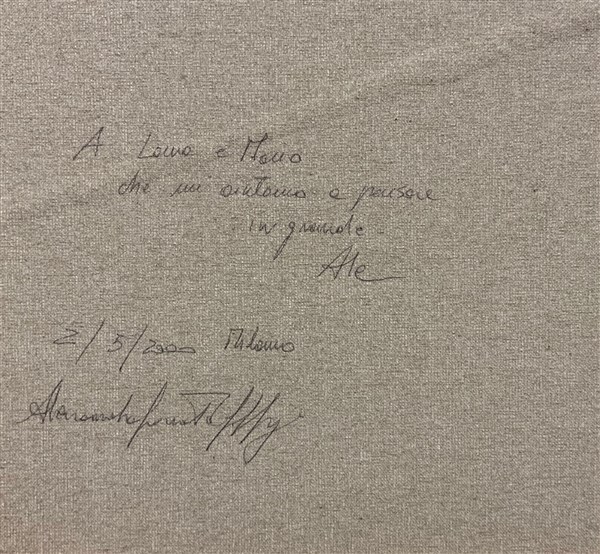 A Laura e Mauro
che mi aiutano a pensare
in grande
Ale
2/5/2000 Milano